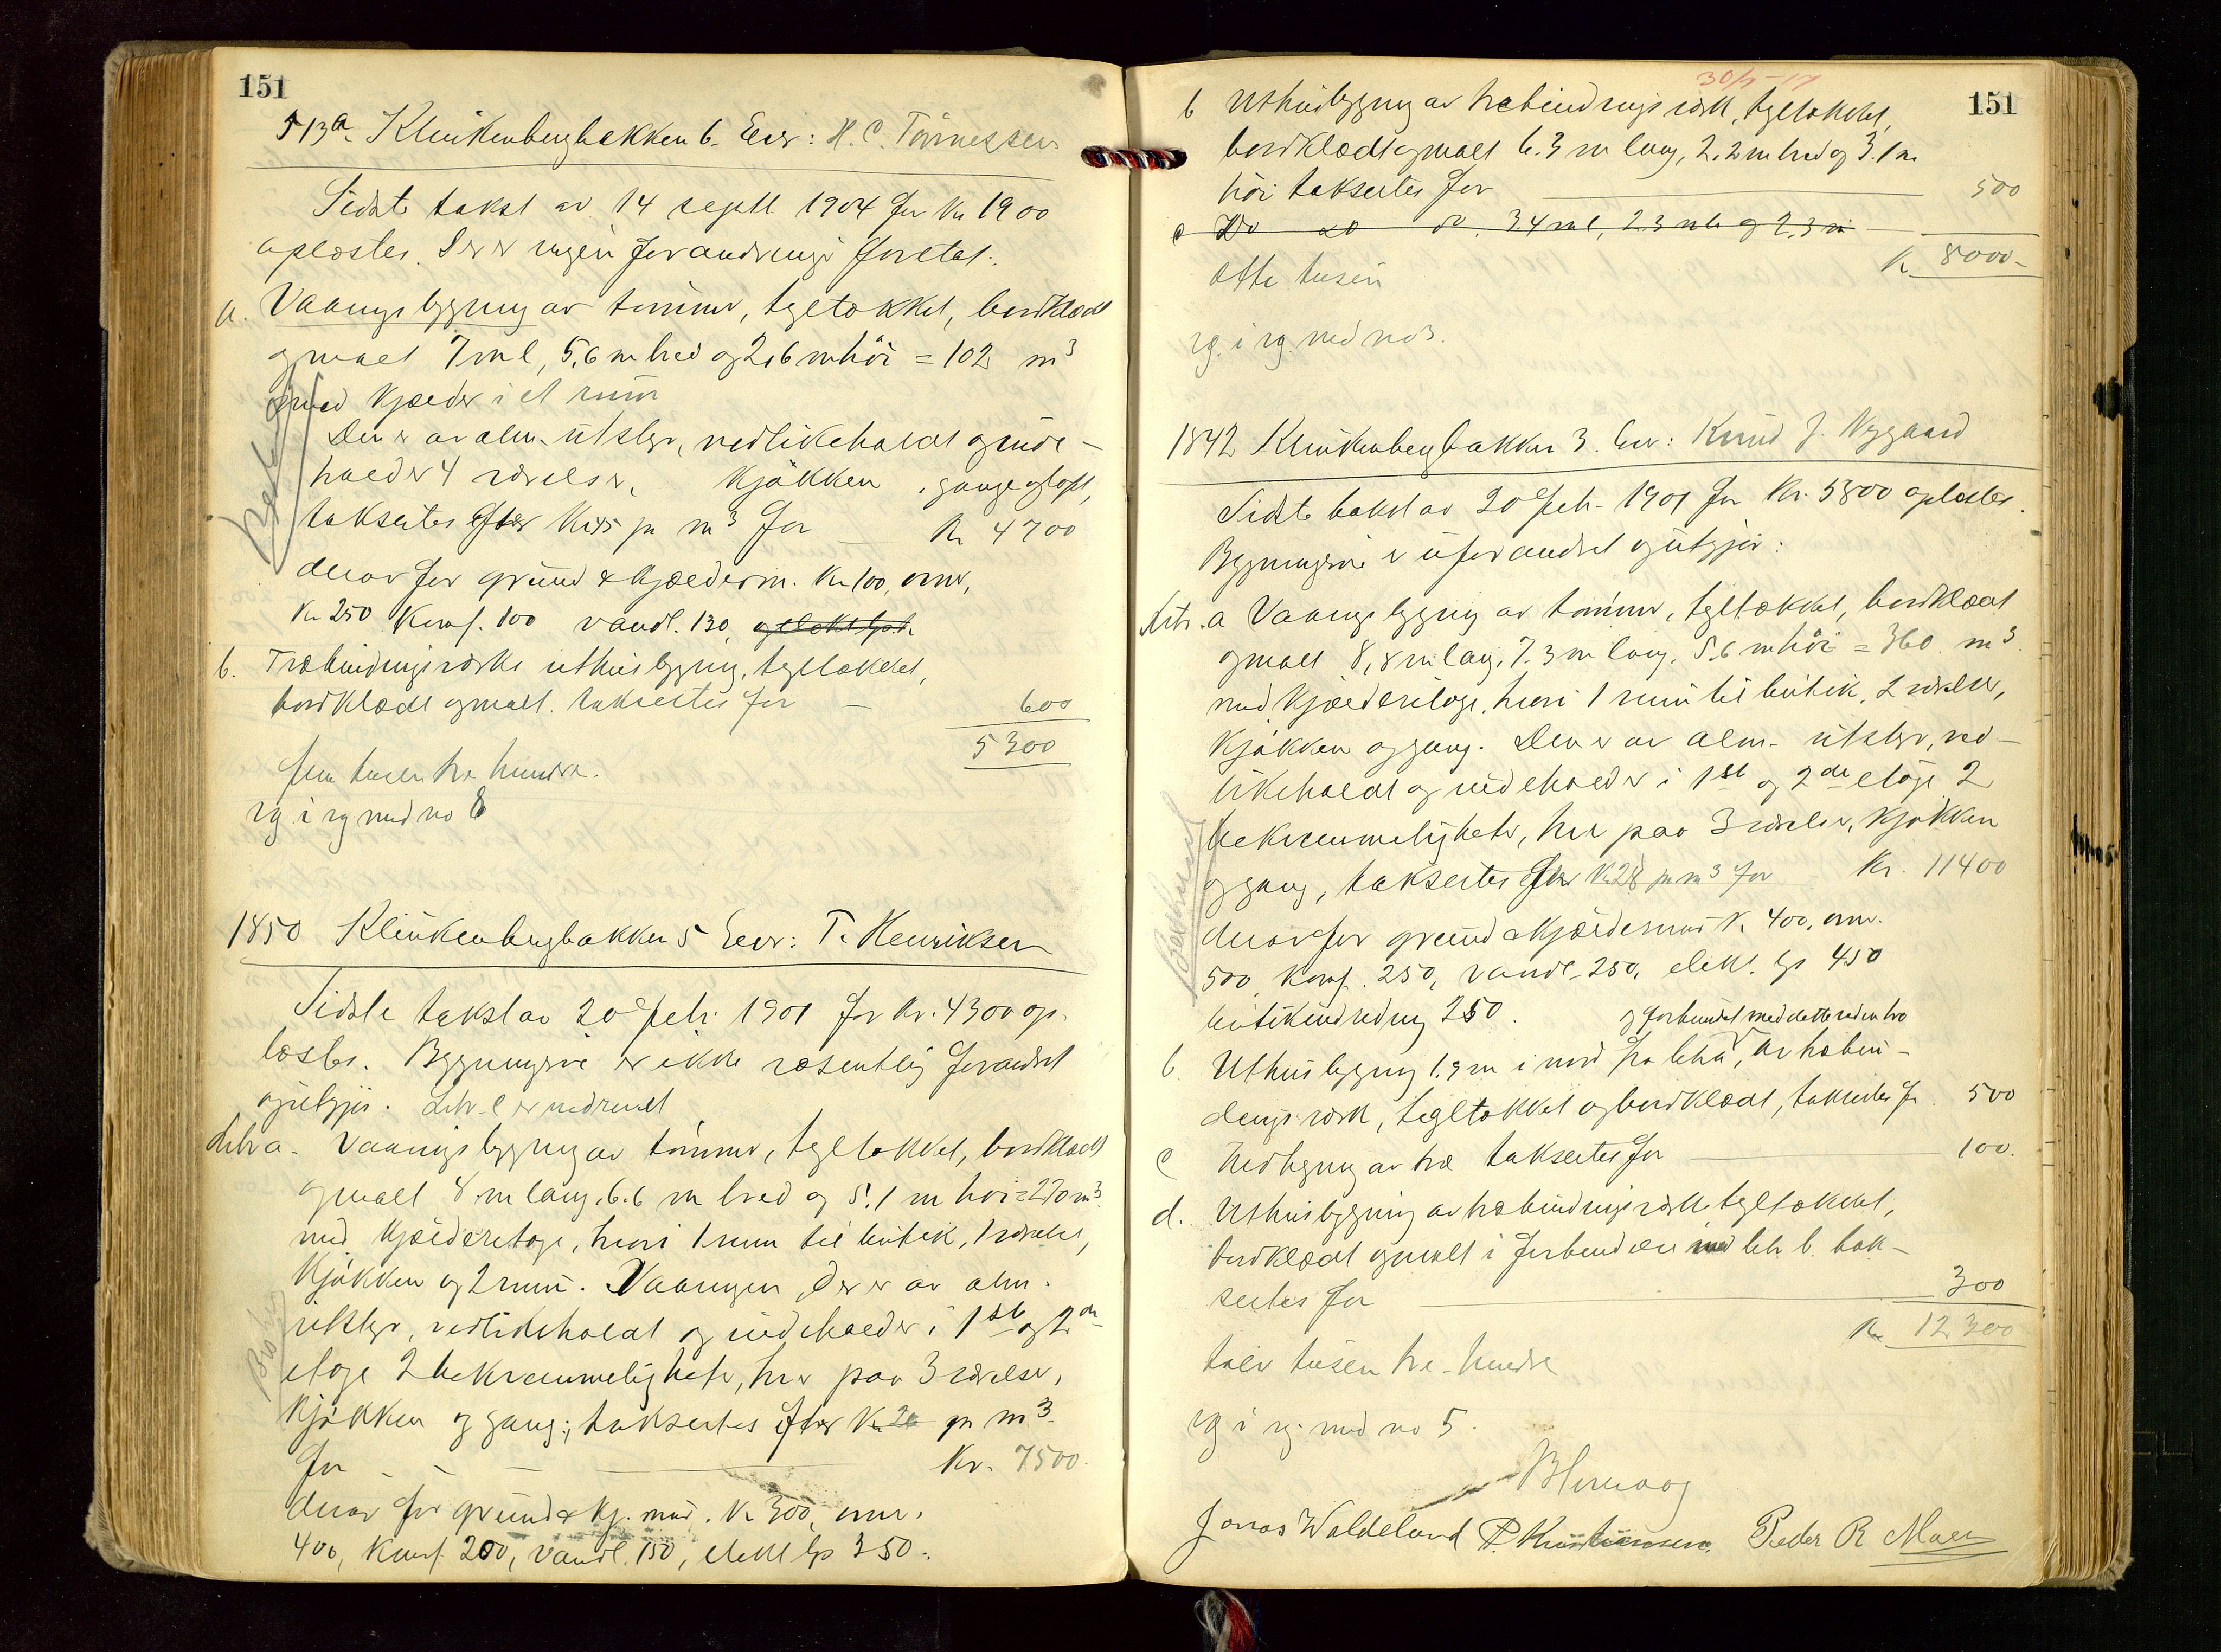 151
513a. Klinkenbergbakken 6. Eier: H. C. Tönnessen
Sidste takst av 14 septb. 1904 for Kr 1900
oplæstes. Der er ingen forandring foretat.
a. Vaaningsbygning av tömmer, tegltækket, bordklædt
og malt 7 m l, 5,6 m bred og 2,6 m höi = 102 m3
med kjælder i et rum
Den er av alm. utstyr, vedlikeholdt og inde-
holder 4 værelser, kjökken, gange og loft,
takseres efter Kr 45 pr m3 for Kr 4700
derav for grund & kjælderm. Kr 100, ovner,
Kr 250 Komf. 100 vandl. 130,
b. Træbindingsverks uthusbygning, tegltækket,
bordklædt og malt. takseres for 600
5300
fem tusen tre hundre.
rg i rg med no 8
1850 Klinkenbergbakken 5 Eier: T. Henriksen
Sidste takst av 20 febr. 1901 for Kr. 4300 op-
læstes. Bygningerne er ikke væsentlig forandret
og utgjör. Litr. c er nedrevet
Litr a. Vaaningsbygning av tömmer, tegltækket, bordklædt
og malt 8 m lang, 6.6 m bred og 5.1 m höi = 270 m3
med kjælderetage, hvori 1 rum til butik, 1 værelse,
kjökken og 2 rum. Vaaningen, der er av alm.
utstyr, vedlikeholdt og indeholder i 1ste og 2den
etage 2 bekvemmeligheter, hver paa 3 værelser,
kjökken og gang; takseres efter Kr 28 pr m3
for Kr. 7500.
derav for grund & kj. mur. Kr 300, ovner.
400, Komf. 200, vandl. 150, elekt lys 350.
30/7-17
151
b Uthusbygning av træbindingsværk, tegltækket,
bordklædt og malt 6.3 m lang, 2.2 m bred og 3.1 m
höi takseres for 500
c Do do do. 3.4 m l, 2.3 m b og 2.3 m
Kr 8000-
otte tusen
rg. i rg. med no 3.
1842 Klinkenbergbakken 3. Eier: Knud J. Nygaard
Sidste takst av 20 febr. 1901 for Kr. 5800 oplæstes.
Bygningerne er uforandret og utgjör:
Litr. a Vaaningsbygning av tömmer, tegltækket, bordklædt
og malt 8,8 m lang, 7.3 m lang, 5.6 m höi = 360 m3.
med kjælderetage, hvori 1 rum til butik, 2 værelser,
kjökken og gang. Den er av alm. utstyr, ved-
likeholdt og indeholder i 1ste og 2den etage 2
bekvemmeligheter, hver paa 3 værelser, kjökken
og gang, takseres efter Kr 28 pr m3 for Kr. 11400
derav for grund & kjældermur Kr 400, ovner.
500, Komf. 250, vandl. 250, elekt. lys 450
butikindredning 250.
og forbundet med dette ved en bro
b. Uthusbygning 1.9 m i nord fra litr a, av træbin-
dingsværk, tegltækket og bordklædt, takseres for 500
c Vedbygning av træ takseres for 100.
d. Uthusbygning av træbindingsværk tegltækket,
bordklædt og malt i forbindelse med litr b. tak-
seres for 300
Kr 12300
tolv tusen tre hundre
rg i rg. med no 5.
Jonas Waldeland P. Kristiansen. Peder R Moen